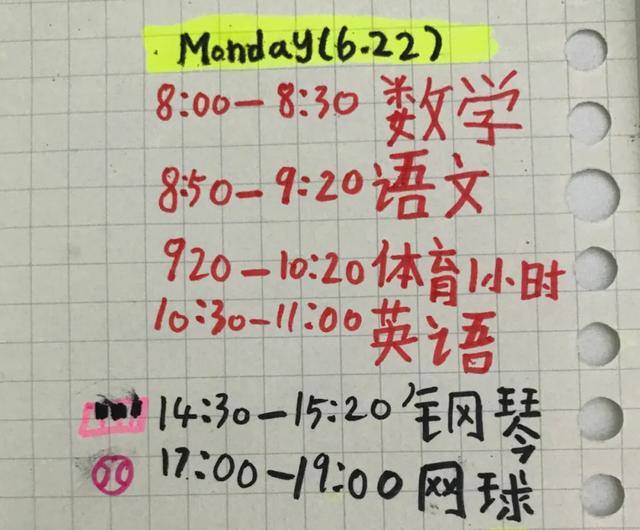 Monday(6.22)
8:00-8:30 数学
8:50-9:20 语文
920-10:20 体育1小时
10:30-11:00 英语
14:30-15:20 钢琴
17:00-19:00 网球